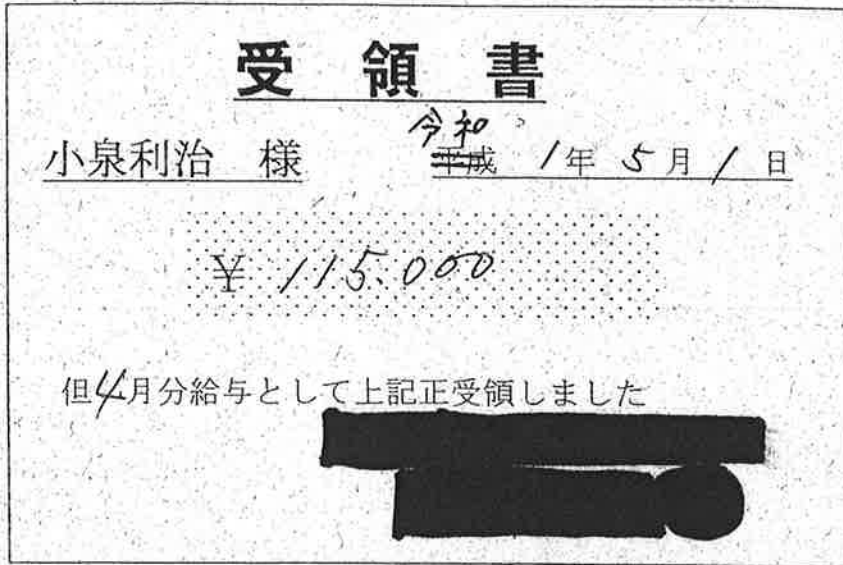 受領書
令和
小泉利治 様 平成 1年 5月 1日
¥ 115.000
但4月分給与として上記正受領しました